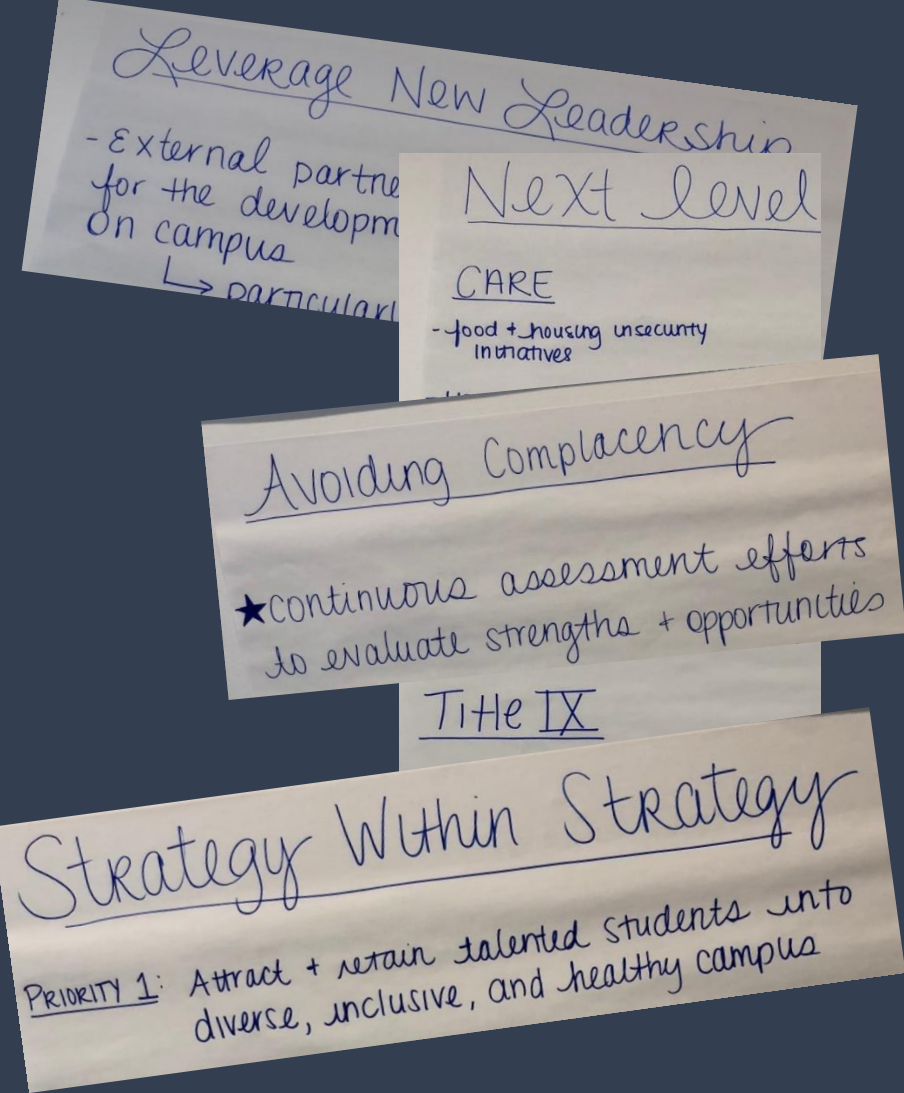 Leverage New Leadership
- External partne
for the developm
on campus
↳ particularl
Next level
CARE
- food + housing insecurity
initiatives
Avoiding Complacency
★ continuous assessment efforts
to evaluate strengths + opportunities
Title IX
Strategy Within Strategy
PRIORITY 1: Attract + retain talented students into
diverse, inclusive, and healthy campus